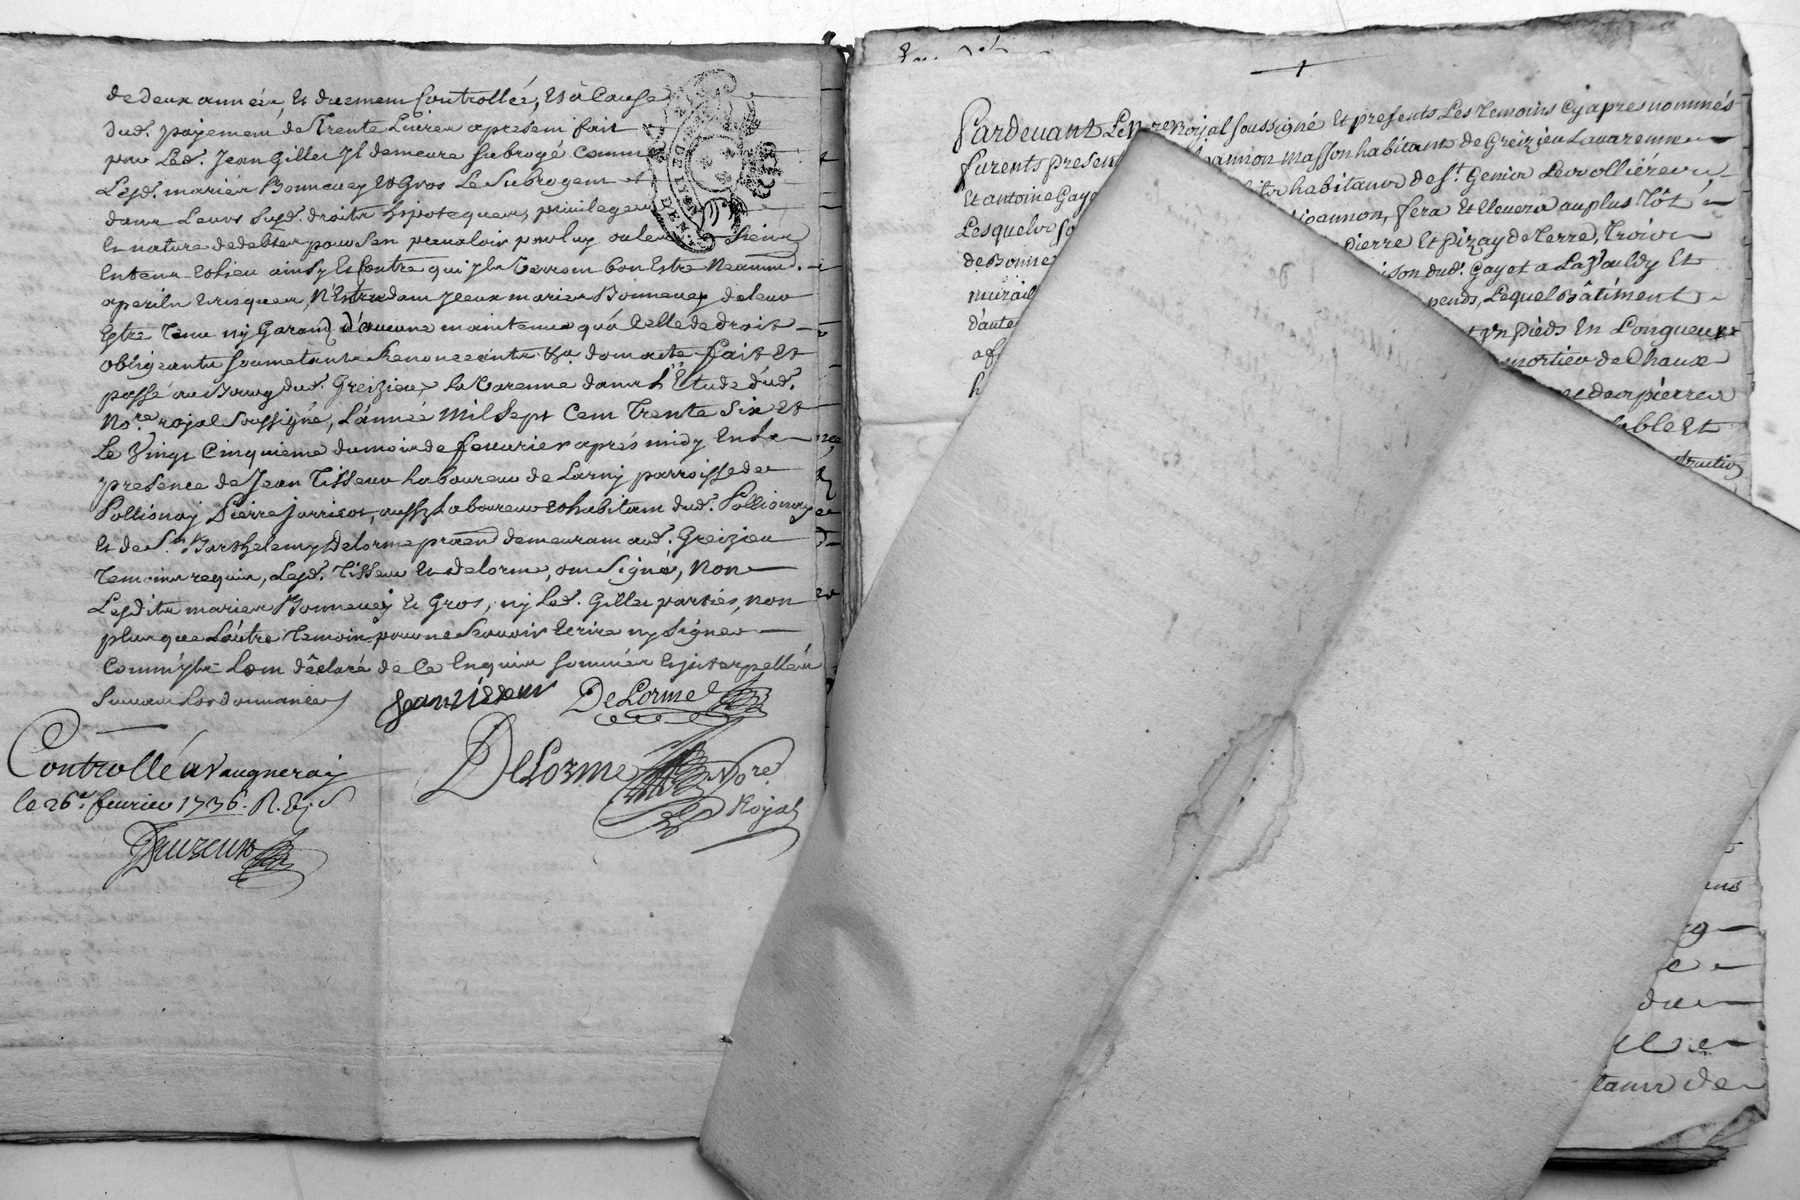 de deux années, et duement Controllée, et à Cause
dud. payement de Trente Livres apresent fait
par Led. Jean Gilles Il demeure subrogé comme
Lesd. mariés Bonnevey et Gros Le Subrogent
dans Leurs susd. droits hipoteques, privileges
et nature de debtes pour s'en prevaloir par luy ou les Siens
en tems et Lieu ainsy et Contre qui
a perils et risques, N'Entendant Iceux mariés Bonnevey de leur
Estre Tenu ny Garand d'aucune maintenue qu'à Celle de droit
obligeants soumetants Renonceants &a. dont acte fait et
passé au Bourg dud. Greizieu La Varenne dans L'Etude dud.
No.re rojal Soussigné, L'année Mil Sept Cent Trente Six et
Le Vingt Cinquieme du mois de fevrier aprés midy En la
presence de Jean Tisseur Laboureur de Larny parroisse de
Pollionay Pierre Jarricot, aussy Laboureur et habitant dud. Pollionay
et de S.r Barthelemy Delorme praen demeurant aud. Greizieu
Temoins requis, Lesd. Tisseur et Delorme, ont Signé, Non
Lesdits mariés Bonnevey et Gros, ny Led. Gilles parties, non
plus que L'autre Temoin pour ne Scavoir Ecrire ny Signer
Comm'ils L'ont déclaré de Ce Enquis sommés et interpellés
Suivant Lordonnance
Jean tisseur DeLorme
Controllé a Vaugneray
DeLorme No.re
Royal
le 26.e fevrier 1736. R.
Pardevant Le No.re Rojal soussigné Et presents Les Temoins Cy apres nommés
furents presen Joannon masson habitant de Greizieu Lavarenne
Et antoine Gaye habitant de S.t Genis Levrollière
Lesquels so Joannon, fera Et Elevera au plus Tôt
de Bonne pierre Et Pizay de Terre, Trois
murail ison dud. Gayet a La Vauldy Et
d'aute pends, Lequel Bâtiment
af t Un Pieds En Longueur
h mortier de Chaux
es de pierres
able Et
truction
ens
e
du
tans de